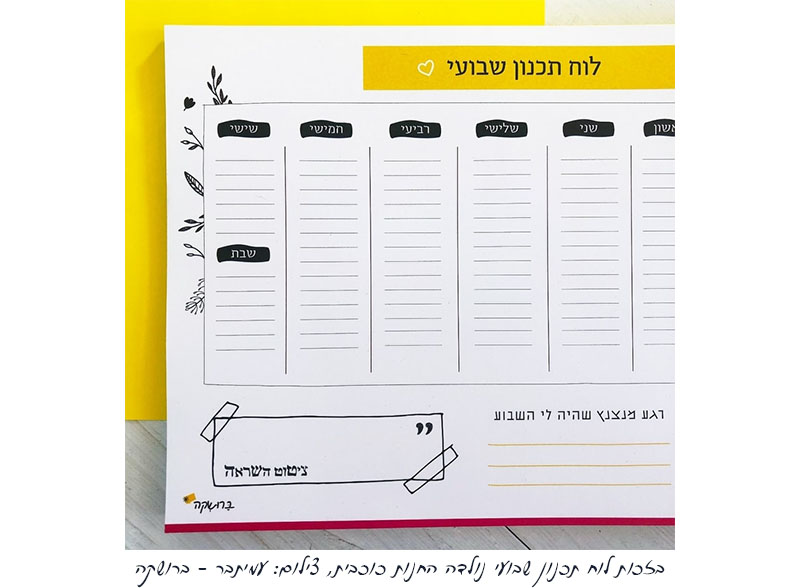 לוח תכנון שבועי
אשון שני שלישי רביעי חמישי שישי
שבת
רגע מנצנץ שהיה לי השבוע
”
ציטוט השראה
ברושקה
בזכות לוח תכנון שבועי נולדה החנות כוכבית, צילום: עמיתבר – ברושקה